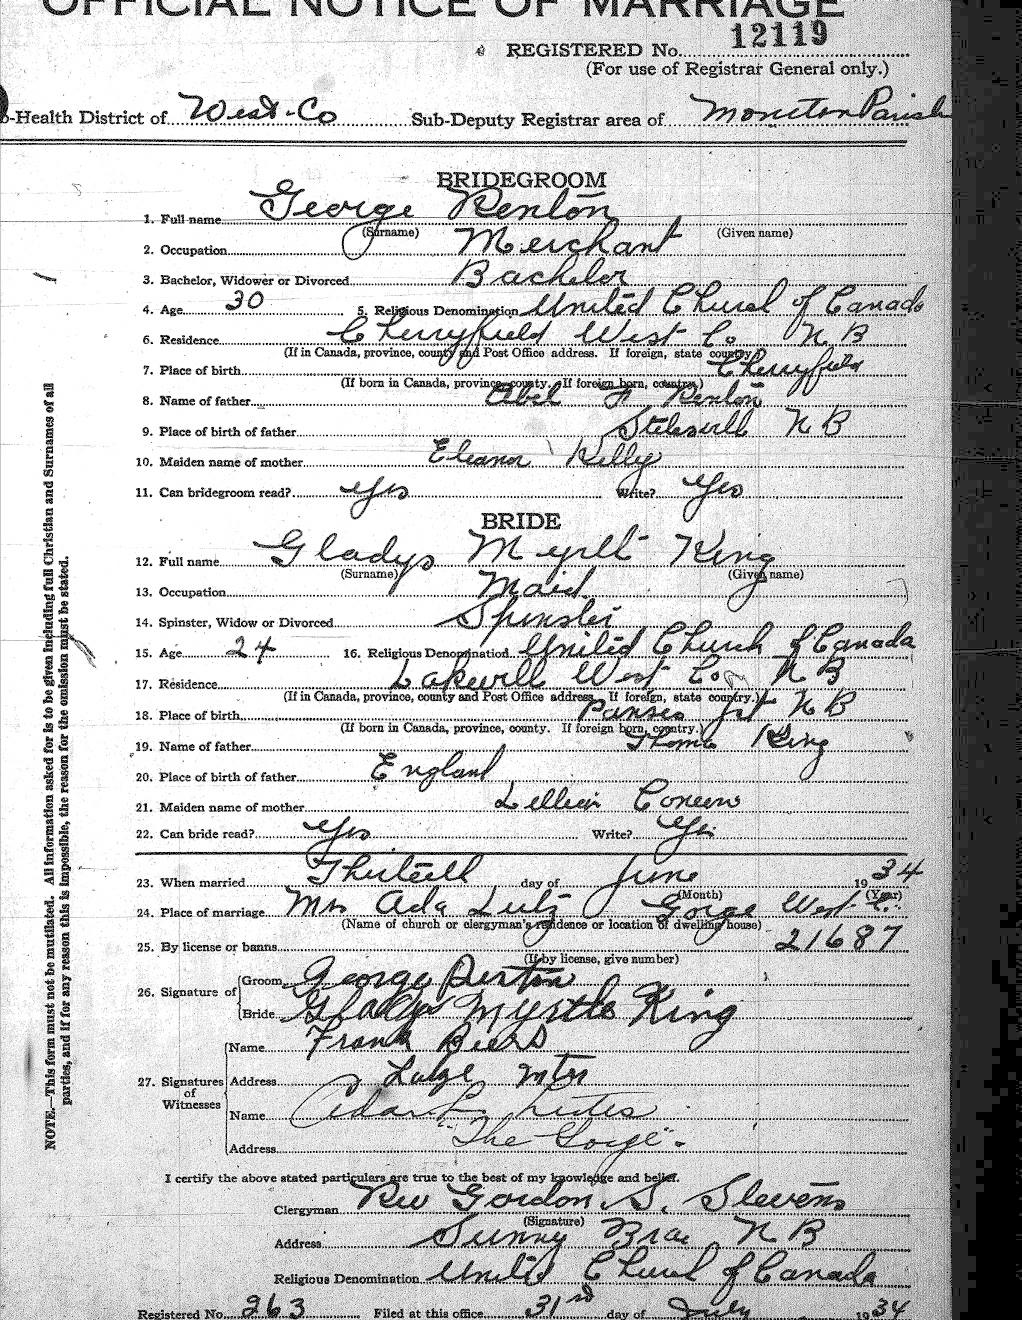 OFFICIAL NOTICE OF MARRIAGE
REGISTERED No. 12119
(For use of Registrar General only.)
-Health District of West-Co Sub-Deputy Registrar area of Moncton Parish
BRIDEGROOM
1. Full name George Renton
(Surname) (Given name)
2. Occupation Merchant
3. Bachelor, Widower or Divorced Bachelor
4. Age 30 5. Religious Denomination United Church of Canada
6. Residence Cherryfield West Co N B
(If in Canada, province, county and Post Office address. If foreign, state country.)
7. Place of birth Cherryfield
(If born in Canada, province, county. If foreign born, country.)
8. Name of father Abel F Renton
9. Place of birth of father N B
10. Maiden name of mother Eleanor Kelly
11. Can bridegroom read? Yes Write? Yes
BRIDE
12. Full name Gladys Myrlt King
(Surname) (Given name)
13. Occupation Maid
14. Spinster, Widow or Divorced Spinster
15. Age 24 16. Religious Denomination United Church of Canada
17. Residence Lakevill West Co N B
(If in Canada, province, county and Post Office address. If foreign, state country.)
18. Place of birth N B
(If born in Canada, province, county. If foreign born, country.)
19. Name of father Thomas King
20. Place of birth of father England
21. Maiden name of mother
22. Can bride read? Yes Write? Yes
23. When married day of June 1934
(Month) (Year)
24. Place of marriage Mrs Ada Lutz Gorge West Co.
(Name of church or clergyman's residence or location of dwelling house)
25. By license or banns 21687
(If by license, give number)
26. Signature of Groom George Renton
Bride Gladys Myrtle King
27. Signatures of Witnesses
Name Frank Beers
Address Lutze Mtn
Name Lutes
Address "The Gorge".
I certify the above stated particulars are true to the best of my knowledge and belief.
Clergyman Rev Gordon S. Stevens
(Signature)
Address Sunny Brae N B
Religious Denomination United Church of Canada
Registered No. 263 Filed at this office 31rd day of July 1934
NOTE.—This form must not be mutilated. All information asked for is to be given including full Christian and Surnames of all
parties, and if for any reason this is impossible, the reason for the omission must be stated.